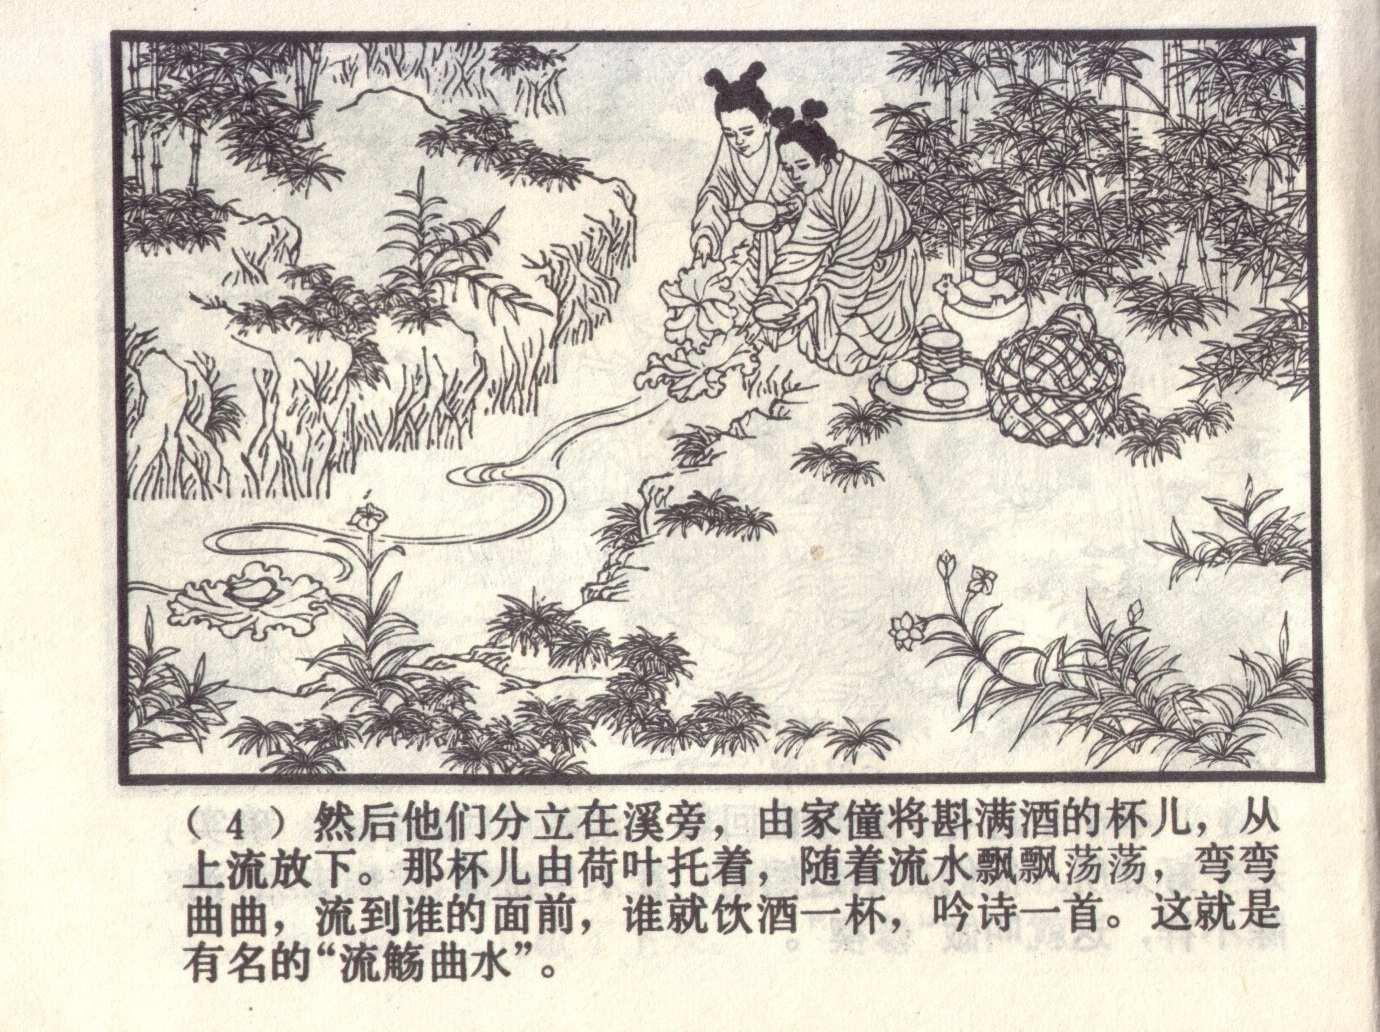 （4）然后他们分立在溪旁，由家僮将斟满酒的杯儿，从
上流放下。那杯儿由荷叶托着，随着流水飘飘荡荡，弯弯
曲曲，流到谁的面前，谁就饮酒一杯，吟诗一首。这就是
有名的“流觞曲水”。